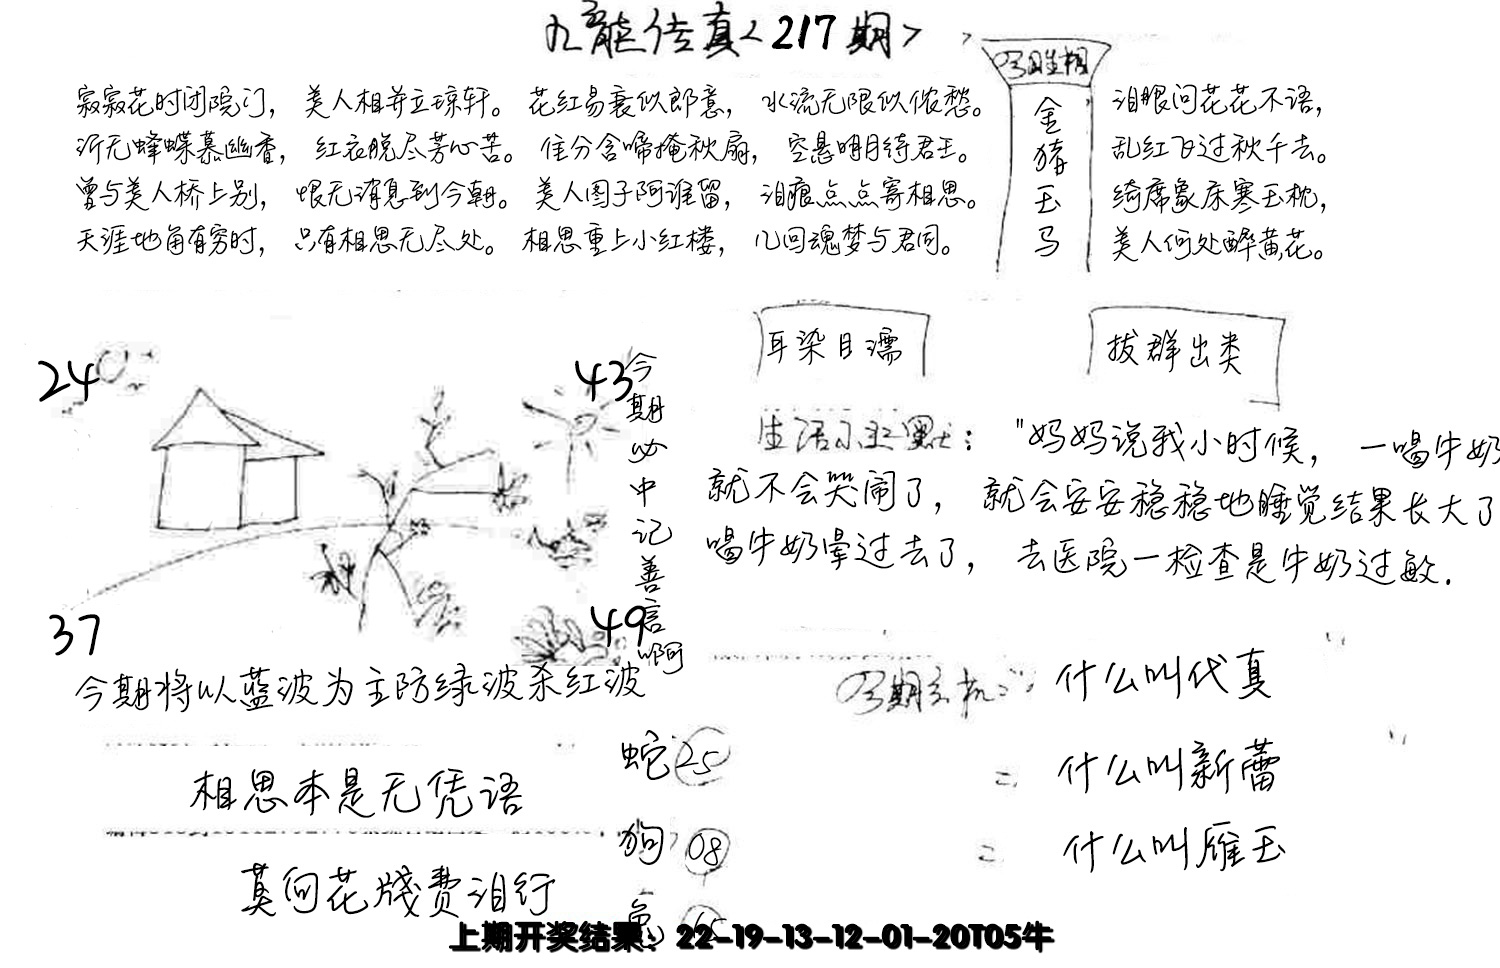 九龙传真<217期>
寂寂花时闭院门，美人相并立琼轩。花红易衰似郎意，水流无限似侬愁。
泪眼问花花不语，
断无蜂蝶慕幽香，红衣脱尽芳心苦。佳分含啼掩秋扇，空悬明月待君王。
乱红飞过秋千去。
曾与美人桥上别，恨无消息到今朝。美人图子阿谁留，泪痕点点寄相思。
绮席象床寒玉枕，
天涯地角有穷时，只有相思无尽处。相思重上小红楼，几回魂梦与君同。
美人何处醉黄花。
金
猪
玉
马
耳染目濡
拔群出类
24
43
37
49
今期必中记善言啊
"妈妈说我小时候，一喝牛奶
就不会哭闹了，就会安安稳稳地睡觉结果长大了
喝牛奶晕过去了，去医院一检查是牛奶过敏.
今期将以蓝波为主防绿波杀红波
什么叫代真
什么叫新蕾
什么叫雁玉
相思本是无凭语
莫向花笺费泪行
蛇 25
狗 08
上期开奖结果：22-19-13-12-01-20T05牛